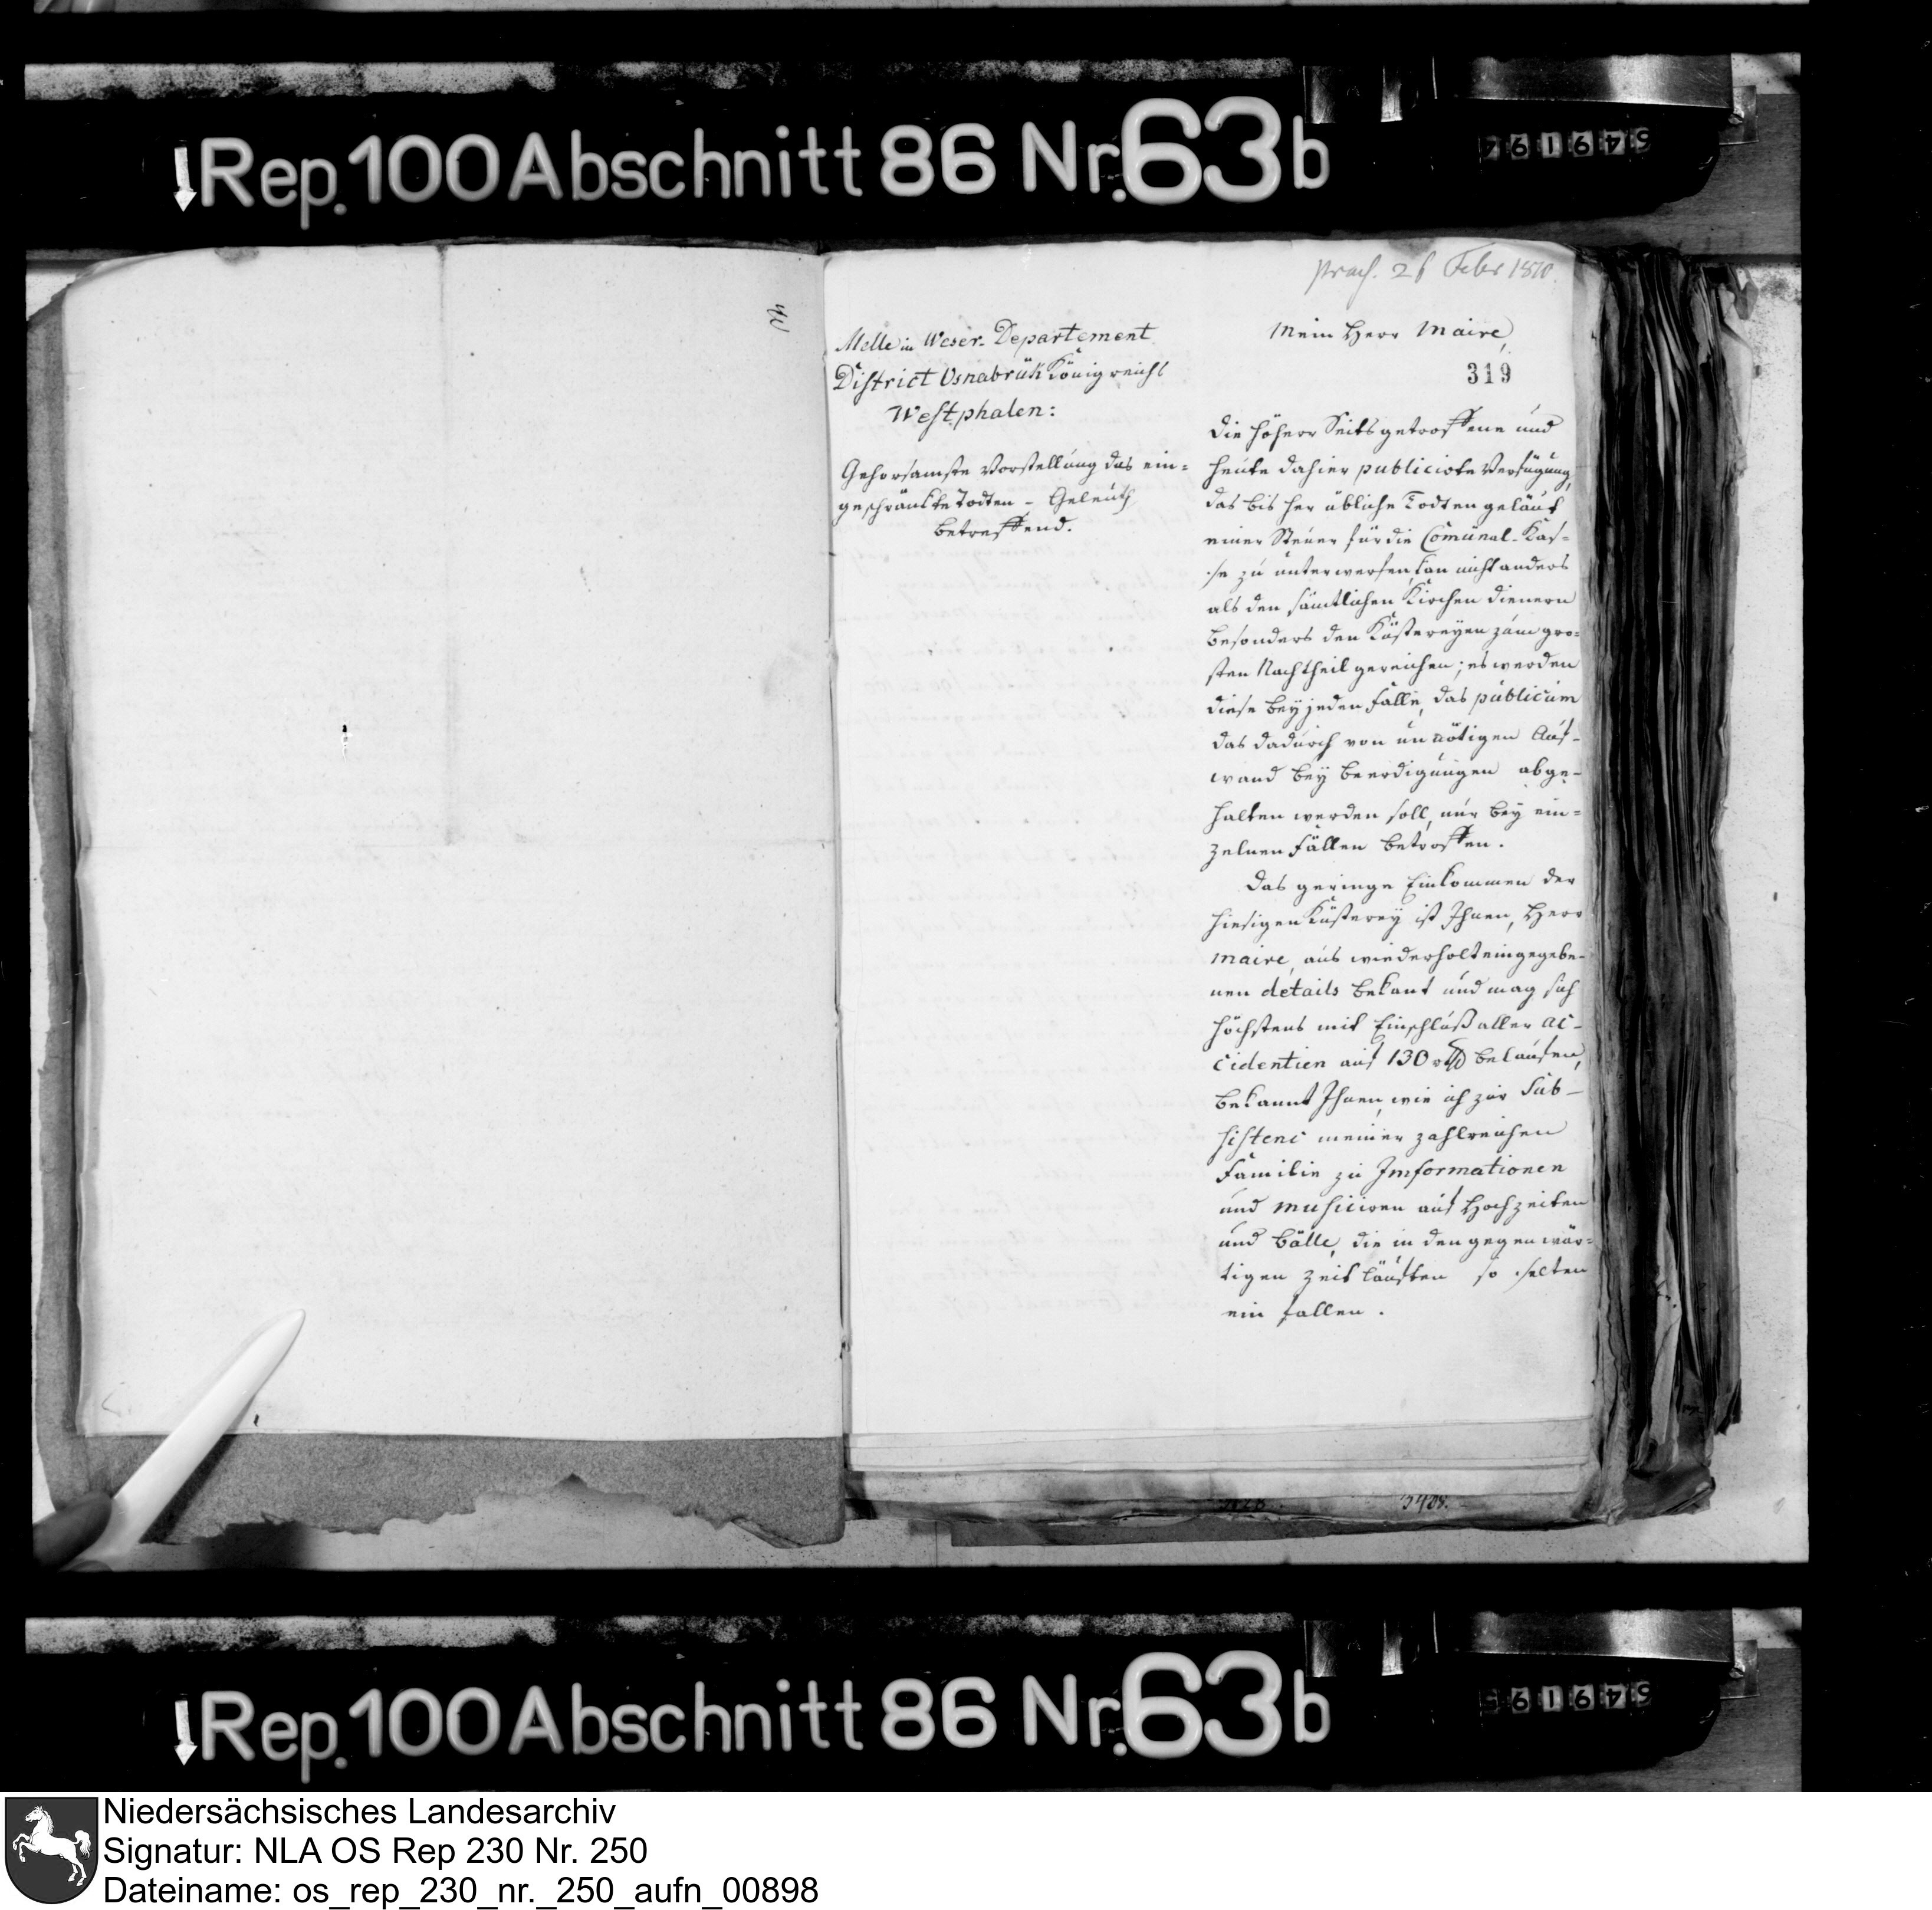 Rep. 100 Abschnitt 86 Nr. 63b
præs. 26 Febr 1810.
Melle in Weser-Departement
District Osnabrük Königreichs
Westphalen:
Gehorsamste Vorstellung das ein=
geschränkte Todten-Geleut
betreffend.
Mein Herr Maire,
319
Die höherr Seits getroffene und
heute dahier publicirte Verfügung,
das bis her übliche Todten geläut
einer Steuer für die Comünal-Kas=
se zu unterwerfen, kan nicht anders
als den sämtlichen Kirchen dienern
besonders den Küstereyen zum grö=
sten Nachtheil gereichen; es werden
diese bey jeden Falle, das publicum
das dadurch von unnötigen Auf-
wand bey Beerdigungen abge-
halten werden soll, nur bey ein=
zelnen Fällen betroffen.
Das geringe Einkommen der
hiesigen Küsterey ist Ihnen, Herr
Maire, aus wiederholt eingegebe-
nen details bekant und mag sich
höchstens mit Einschluß aller ac-
cidentien auf 130 rthl belaufen,
bekannt Ihnen, wie ich zur Sub-
sistenc meiner zahlreichen
Familie zu Imformationen
und musiciren auf Hochzeiten
und Bälle, die in den gegenwär=
tigen Zeitläuften so selten
ein fallen.
3408.
Rep. 100 Abschnitt 86 Nr. 63b
Niedersächsisches Landesarchiv
Signatur: NLA OS Rep 230 Nr. 250
Dateiname: os_rep_230_nr._250_aufn_00898